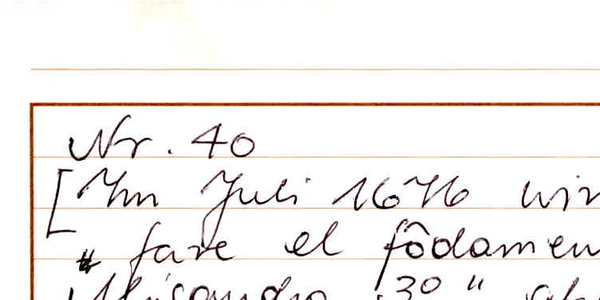 Nr. 40
[Im Juli 1676 wir
" fare el fôdamen
30 "